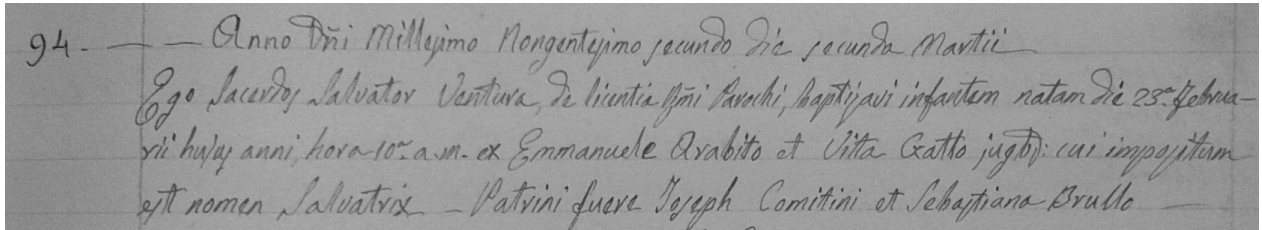 94. — — Anno Dñi Millesimo Nongentesimo secundo die secunda Martii —
Ego Sacerdos Salvator Ventura, de licentia Rm̃i Parochi, baptisavi infantem natam die 23ª Februa-
rii hujus anni, hora 10ª a.m. ex Emmanuele Arabito et Vita Gatto jugb): cui impositum
est nomen Salvatrix — Patrini fuere Joseph Comitini et Sebastiana Brullo —